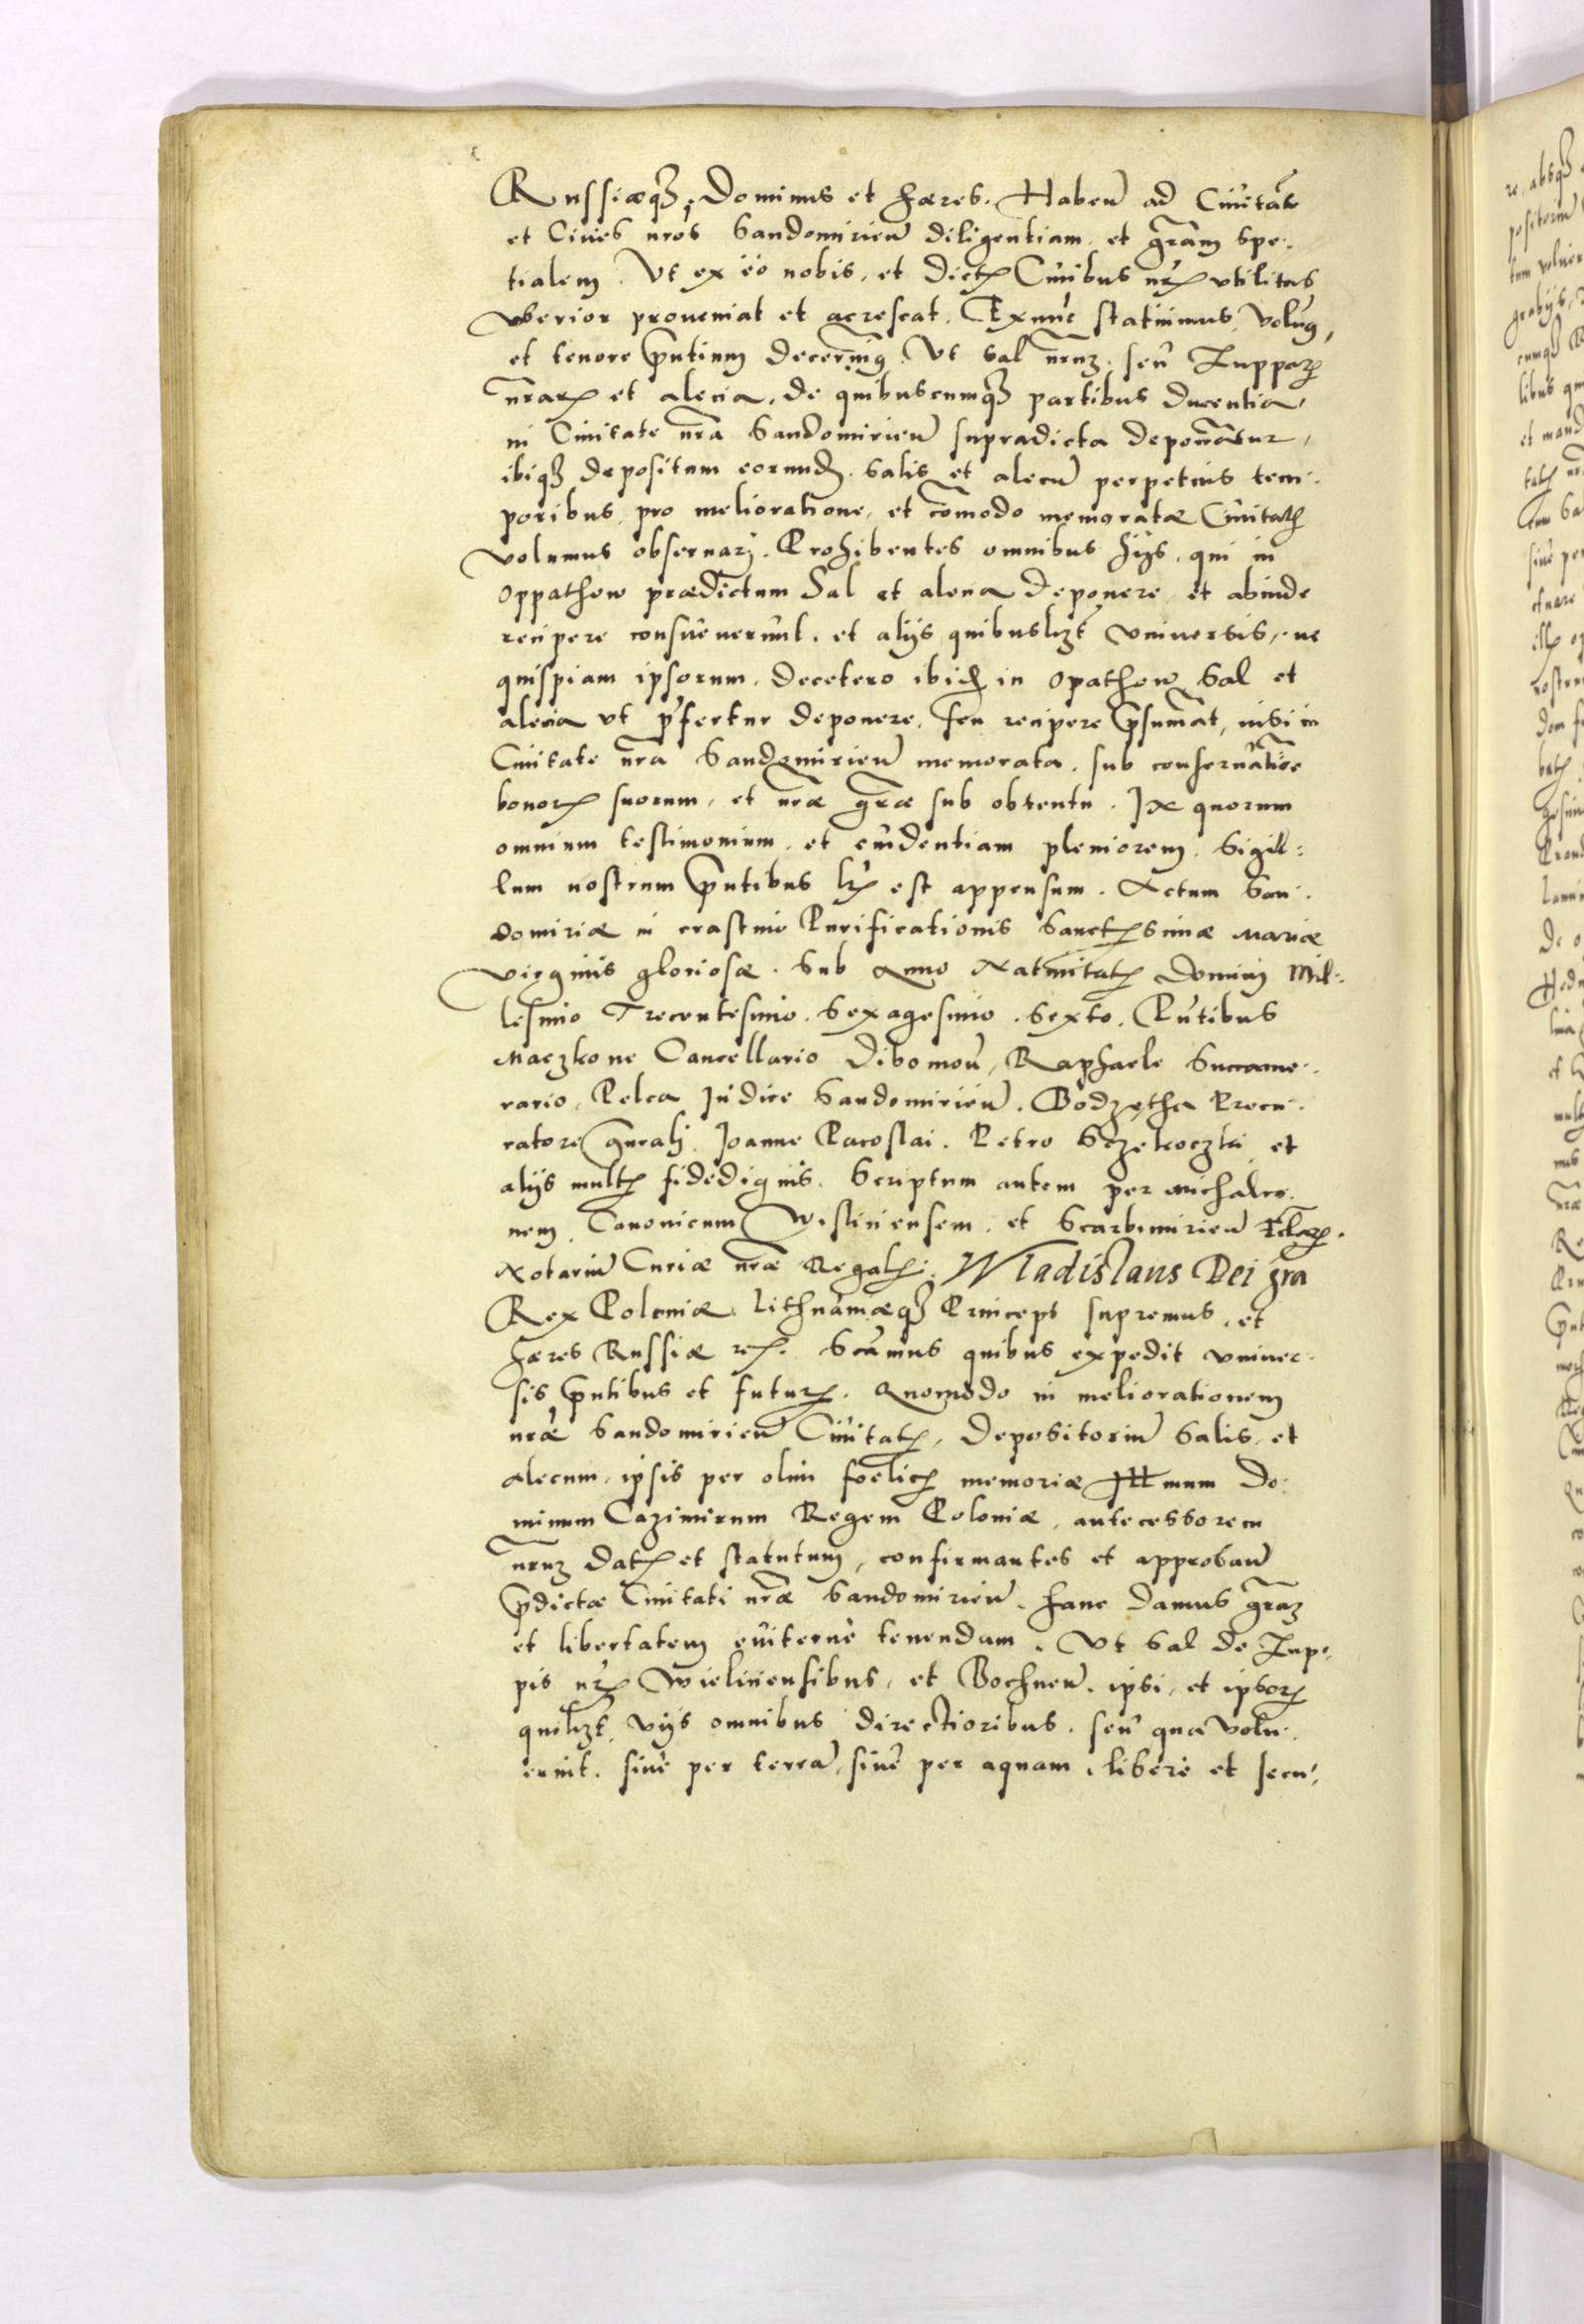 Russiæq3, Dominus et hæres. Haben̄ ad Ciuitate͂
et Ciues nr̄os Sandomirien̄ diligentiam et gr̄am spe:
tialem. Vt ex eo nobis, et dictꝭ Ciuibus nr̄ꝭ vtilitas
vberior proueniat et acrescat. Exnūc statuimus, volumꝰ,
et tenore p̄ntium decernimꝰ. Vt sal nr̄uz. seu Zuppaꝝ
nr̄aꝝ et alecia, de quibuscumq3 partibus ducentia,
in Ciuitate nr̄a Sandomirien̄ supradicta deponātur,
ibiq3 depositum eorund̄. Salis et alecū perpetuis tem:
poribus, pro melioratione, et cōmodo memoratæ Ciuitatꝭ
volumus obseruarj. Prohibentes omnibus hijs, qui in
Oppathow prædictum Sal et alecia deponere et abinde
recipere consueuerunt. et alijs quibuslz̄t vniuersis, ne
quispiam ipsorum. decetero ibid̄ in Opathow Sal et
alecia vt p̄fertur deponere, seu recipere p̄sumat, nisi in
Ciuitate nr̄a Sandomirien̄ memorata. sub conseruātioē
bonoꝝ suorum, et nr̄æ gr̄æ sub obtentu. In quorum
omnium testimonium, et euidentiam pleniorem. Sigil:
lum nostrum p̄ntibus lr̄ꝭ est appensum. Actum San:
domiriæ in crastino Purificationis Sanctissimæ Mariæ
virginis gloriosæ. Sub Anno Natiuitatꝭ Domini Mil:
lesimo Trecentesimo. Sexagesimo. Sexto. P̄ntibus
Maczkone Cancellario Dibomoū, Raphaele Succame:
rario, Pelca Judice Sandomirien̄. Bodzętha Procu:
ratore gn̄ralj. Joanne Pacoslai. Petro Sczekoczki et
alijs multꝭ fidedignis. Scriptum autem per Michalco:
nem, Canonicum Wisliciensem. et Scarbimirien̄ Eccl̄iaꝝ.
Notariū Curiæ nr̄æ Regalꝭ. Wladislaus Dei gr̄a
Rex Poloniæ. Lithuaniæq3 Princeps supremus, et
hæres Russiæ rc̄. Scimus quibus expedit vniuer:
sis p̄ntibus et futurꝭ. Quomodo in meliorationem
nr̄æ Sandomirien̄ Ciuitatꝭ, Depositoriū Salis, et
alecum. ipsis per olim foelicꝭ memoriæ Illmum Do:
minum Cazimirum Regem Poloniæ, antecessorem
nr̄uz datꝭ et statutum, confirmantes et approban̄
p̄dictæ Ciuitati nr̄æ Sandomirien̄. hanc damus gr̄az
et libertatem euiterne tenendam. Vt Sal de Zup:
pis nr̄ꝭ Wieliciensibus, et Bochnen̄. ipsi, et ipsoꝝ
quilz̄t. vijs omnibus directioribus. seu qua volu:
erint. siue per terrā, siue per aquam. libere et secu: